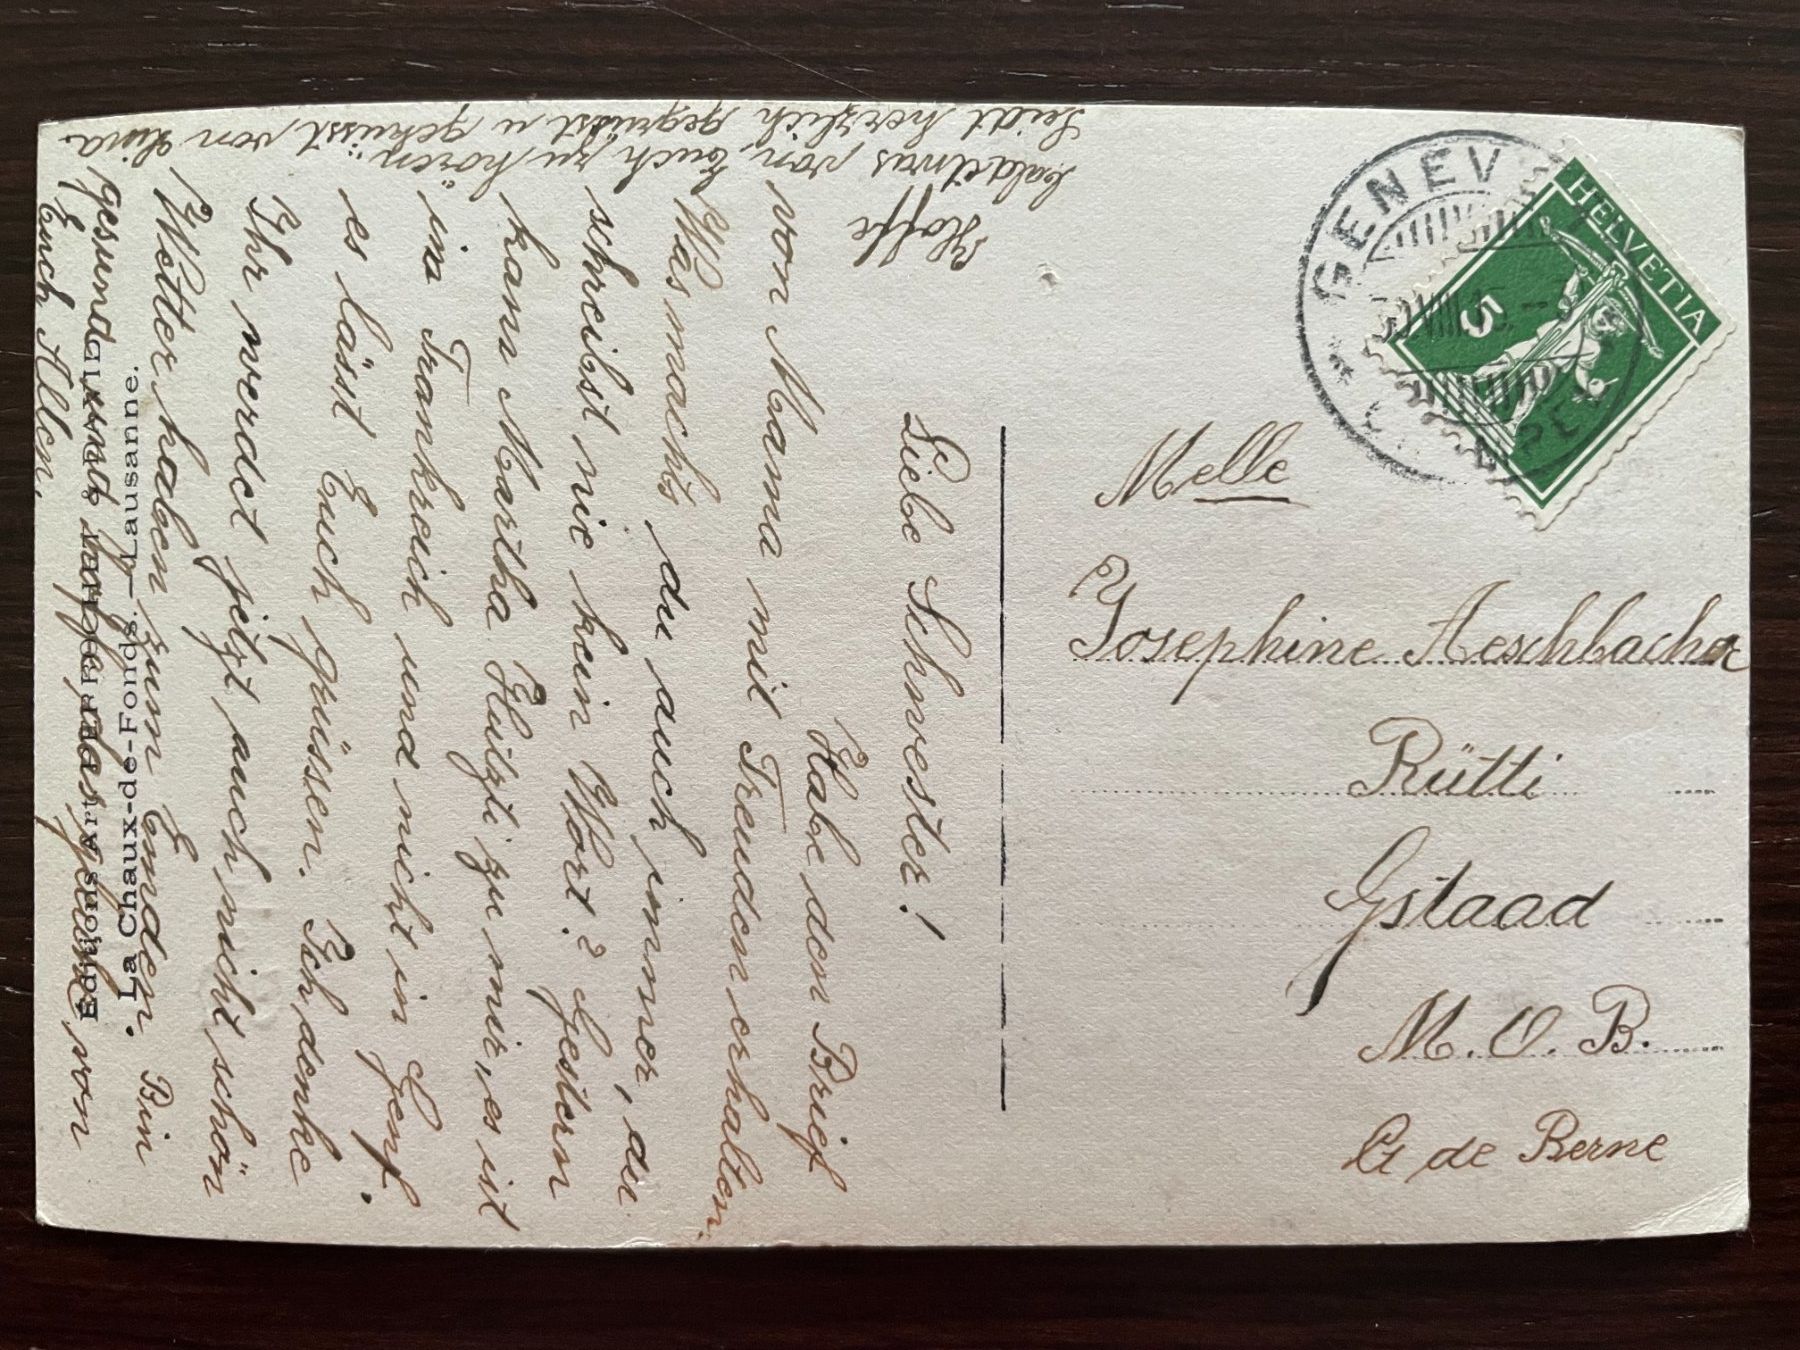 Liebe Schwester!
Habe den Brief
von Mama mit Freuden erhalten.
Was machts du auch immer, du
schreibst nie kein Wort? Gestern
kam Martha zu mir, es ist
in Frankreich und nicht in Genf
es lässt Euch grüssen. Ich denke
Ihr werdet jetzt auch nicht schön
Wetter haben zum Emden. Bin
gesund und hoffe das gleiche von
Euch Allen.
Hoffe
bald etwas von Euch zu hören
Seidt herzlich gegrüsst u geküsst von
Editions Art
La Chaux-de-Fonds. — Lausanne.
GENEVE
VIII
HELVETIA
5
Melle
Josephine Aeschbacher
Rütti
Gstaad
M. O. B.
Ct de Berne